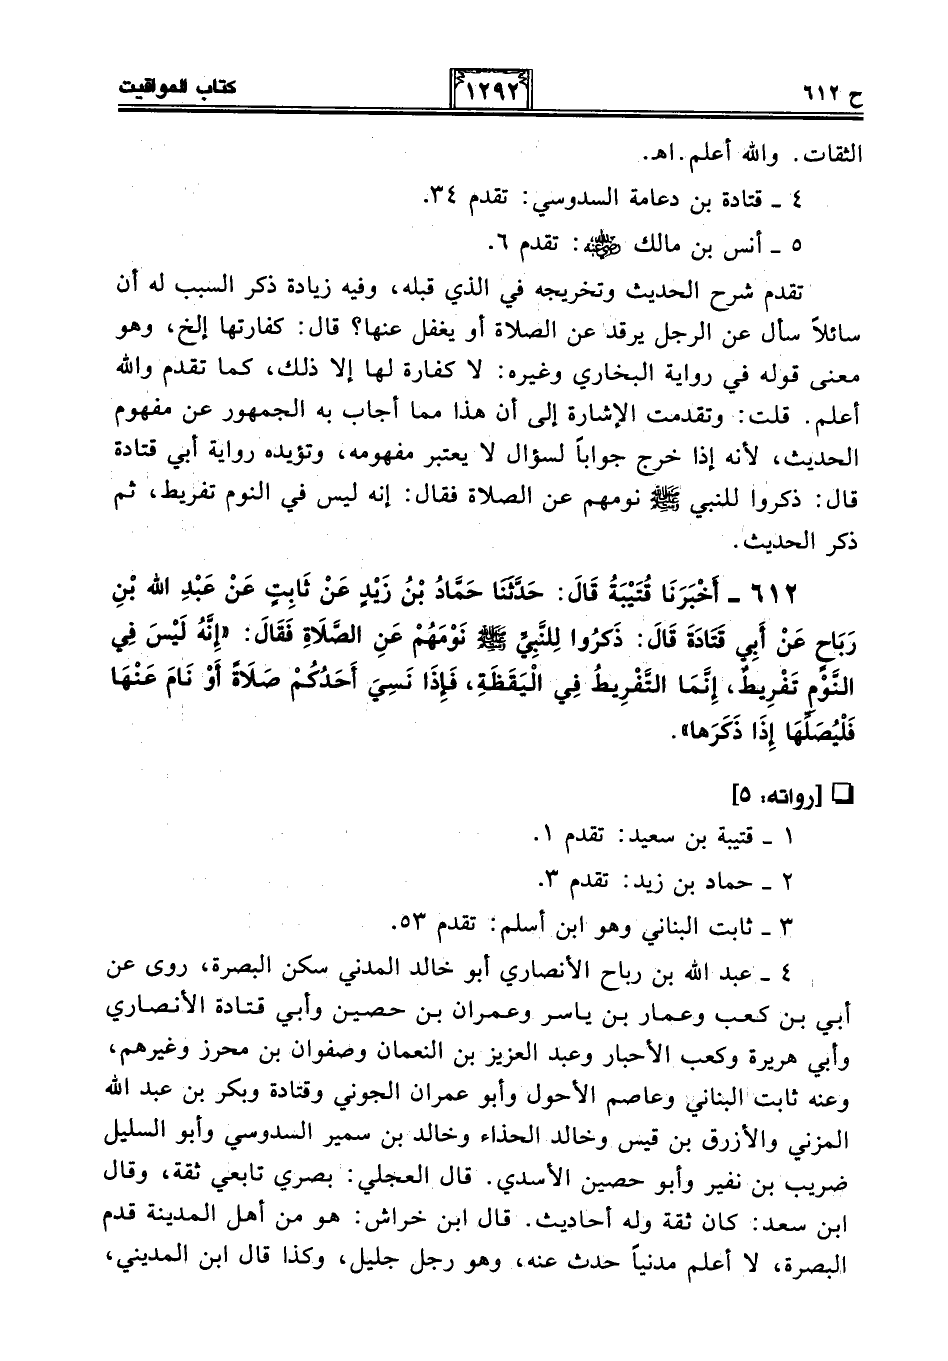 ح ٦١٢
١٢٩٢
كتاب المواقيت
الثقات. والله أعلم.اهـ.
٤ ـ قتادة بن دعامة السدوسي: تقدم ٣٤.
٥ ـ أنس بن مالك رضي الله عنه: تقدم ٦.
تقدم شرح الحديث وتخريجه في الذي قبله، وفيه زيادة ذكر السبب له أن
سائلاً سأل عن الرجل يرقد عن الصلاة أو يغفل عنها؟ قال: كفارتها إلخ، وهو
معنى قوله في رواية البخاري وغيره: لا كفارة لها إلا ذلك، كما تقدم والله
أعلم. قلت: وتقدمت الإشارة إلى أن هذا مما أجاب به الجمهور عن مفهوم
الحديث، لأنه إذا خرج جواباً لسؤال لا يعتبر مفهومه، وتؤيده رواية أبي قتادة
قال: ذكروا للنبي ﷺ نومهم عن الصلاة فقال: إنه ليس في النوم تفريط، ثم
ذكر الحديث.
٦١٢ ـ أَخْبَرَنَا قُتَيْبَةُ قَالَ: حَدَّثَنَا حَمَّادُ بْنُ زَيْدٍ عَنْ ثَابِتٍ عَنْ عَبْدِ الله بْنِ
رَبَاحٍ عَنْ أَبِي قَتَادَةَ قَالَ: ذَكَرُوا لِلنَّبِيِّ ﷺ نَوْمَهُمْ عَنِ الصَّلَاةِ فَقَالَ: «إِنَّهُ لَيْسَ فِي
النَّوْمِ تَفْرِيطٌ، إِنَّمَا التَّفْرِيطُ فِي الْيَقَظَةِ، فَإِذَا نَسِيَ أَحَدُكُمْ صَلَاةً أَوْ نَامَ عَنْهَا
فَلْيُصَلِّهَا إِذَا ذَكَرَها».
❏ [رواته: ٥]
١ ـ قتيبة بن سعيد: تقدم ١.
٢ ـ حماد بن زيد: تقدم ٣.
٣ ـ ثابت البناني وهو ابن أسلم: تقدم ٥٣.
٤ ـ عبد الله بن رباح الأنصاري أبو خالد المدني سكن البصرة، روى عن
أبي بن كعب وعمار بن ياسر وعمران بن حصين وأبي قتادة الأنصاري
وأبي هريرة وكعب الأحبار وعبد العزيز بن النعمان وصفوان بن محرز وغيرهم،
وعنه ثابت البناني وعاصم الأحول وأبو عمران الجوني وقتادة وبكر بن عبد الله
المزني والأزرق بن قيس وخالد الحذاء وخالد بن سمير السدوسي وأبو السليل
ضريب بن نفير وأبو حصين الأسدي. قال العجلي: بصري تابعي ثقة، وقال
ابن سعد: كان ثقة وله أحاديث. قال ابن خراش: هو من أهل المدينة قدم
البصرة، لا أعلم مدنياً حدث عنه، وهو رجل جليل، وكذا قال ابن المديني،